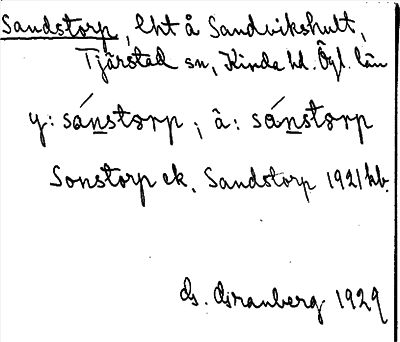 Sandstorp, lht å Sandvikshult,
Tjärstad sn, Kinda hd. Ögl. län
y: sánstorp ; ä: sánstorp
Sonstorp ek. Sandstorp 1921 kb.
G. Granberg 1929